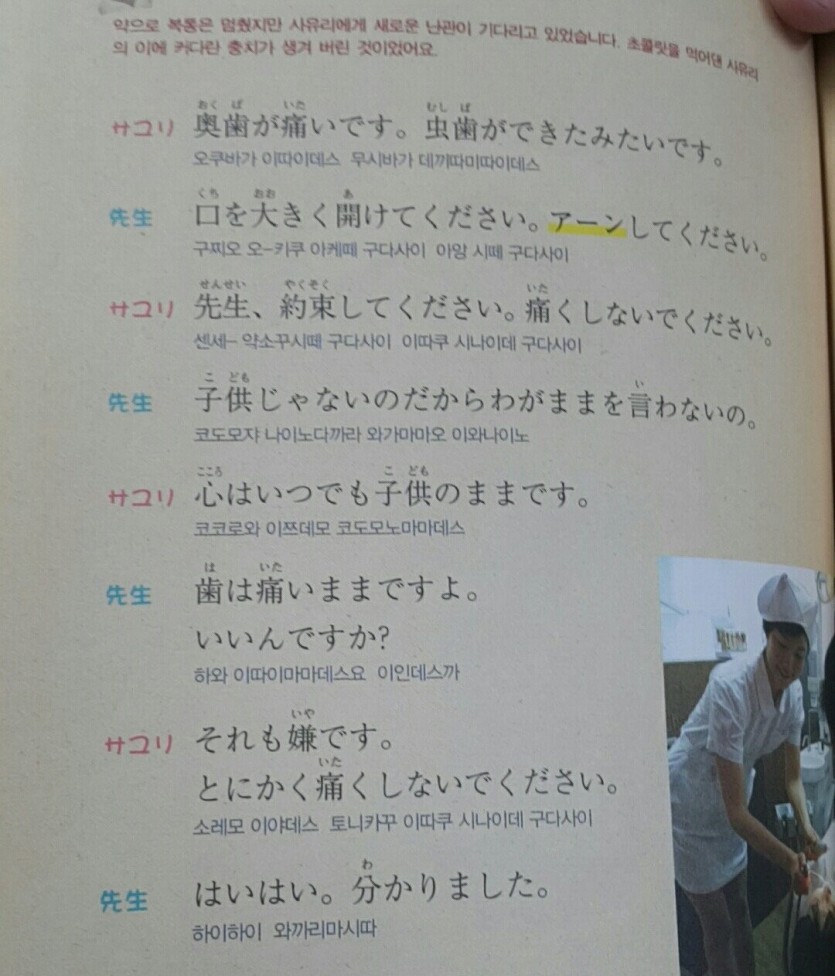 약으로 복통은 멈췄지만 사유리에게 새로운 난관이 기다리고 있었습니다. 초콜릿을 먹어댄 사유리
의 이에 커다란 충치가 생겨 버린 것이었어요.
おく ば いた むし ば
サユリ 奥歯が痛いです。虫歯ができたみたいです。
오쿠바가 이따이데스 무시바가 데끼따미따이데스
くち おお あ
先生 口を大きく開けてください。アーンしてください。
구찌오 오-키쿠 아케떼 구다사이 아앙 시떼 구다사이
せんせい やくそく いた
サユリ 先生、約束してください。痛くしないでください。
센세- 약소꾸시떼 구다사이 이따쿠 시나이데 구다사이
こ ども い
先生 子供じゃないのだからわがままを言わないの。
코도모쟈 나이노다까라 와가마마오 이와나이노
こころ こ ども
サユリ 心はいつでも子供のままです。
코코로와 이쯔데모 코도모노마마데스
は いた
先生 歯は痛いままですよ。
いいんですか?
하와 이따이마마데스요 이인데스까
いや
サユリ それも嫌です。
いた
とにかく痛くしないでください。
소레모 이야데스 토니카꾸 이따쿠 시나이데 구다사이
わ
先生 はいはい。分かりました。
하이하이 와까리마시따